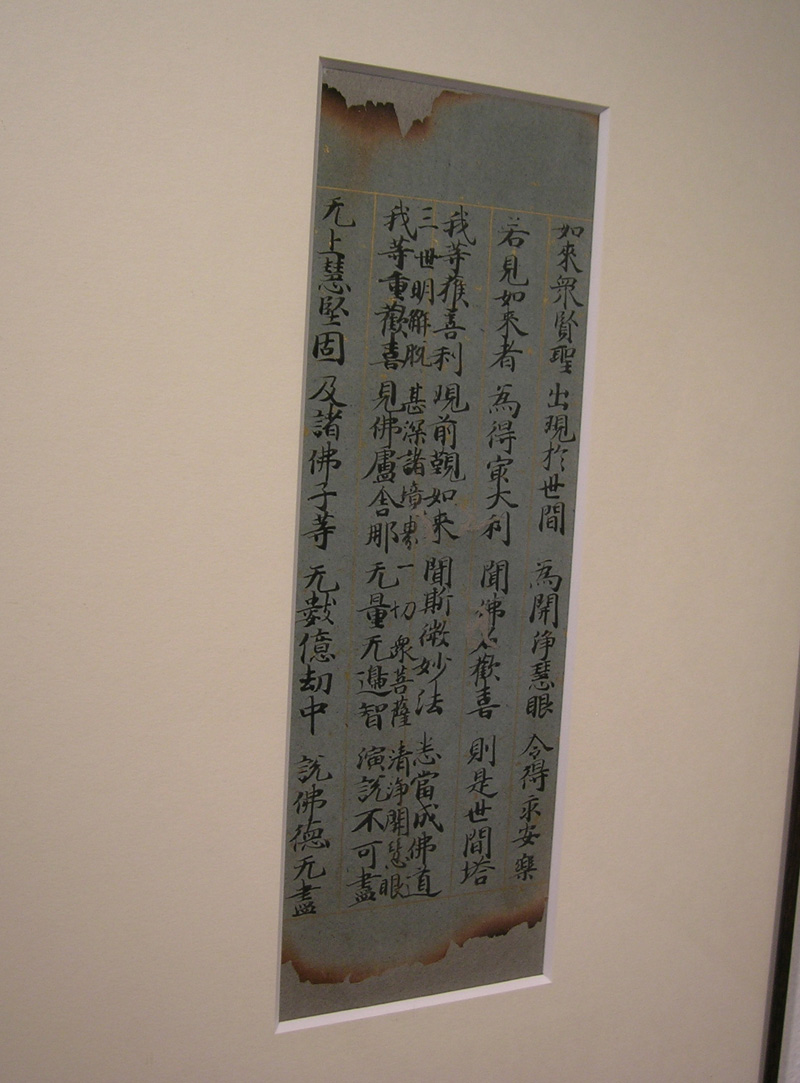 如來衆賢聖 出現於世間 為開淨慧眼 令得永安樂
若見如來者 為得㝡大利 聞佛名歡喜 則是世間塔
我等獲善利 現前覲如來 聞斯微妙法 悉當成佛道
三世明解脫 甚深諸境界 一切衆菩薩 清淨開慧眼
我等重歡喜 見佛盧舍那 无量无邊智 演說不可盡
无上慧堅固 及諸佛子等 无數億劫中 說佛德无盡